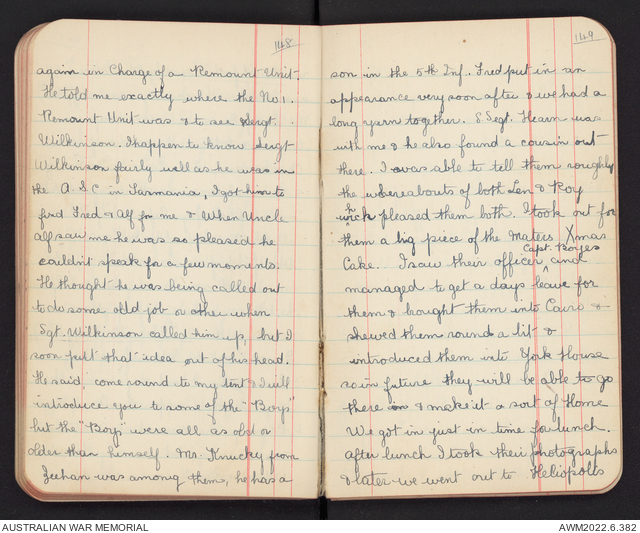 148
again in Charge of a Remount Unit.
He told me exactly where the No 1.
Remount Unit was & to see Sergt.
Wilkinson. I happen to know Sergt
Wilkinson fairly well as he was in
the A.S.C in Tasmania, I got him to
find Fred & Alf for me & When Uncle
Alf saw me he was so pleased he
couldn't speak for a few moments.
He thought he was being called out
to do some odd job or other when
Sgt. Wilkinson called him up, but I
soon put that idea out of his head.
He said, come round to my tent & I will
introduce you to some of the "Boys"
but the "Boys" were all as old or
older than himself. Mr. Knucky from
Zeehan was among them, he has a
149
son in the 5th Inf.. Fred put in an
appearance very soon after & we had a
long yarn together. S Sgt. Hearn was
with me & he also found a cousin out
there. I was able to tell them roughly
the whereabouts of both Len & Roy
which pleased them both. I took out for
them a big piece of the Maters Xmas
Capt. Boyes
Cake. I saw their officer and
managed to get a days leave for
them & brought them into Cairo &
shewed them round a bit &
introduced them into York House
so in future they will be able to go
there & make it a sort of Home
We got in just in time for lunch.
after lunch I took their photographs
& later we went out to Heliopolis
AUSTRALIAN WAR MEMORIAL
AWM2022.6.382